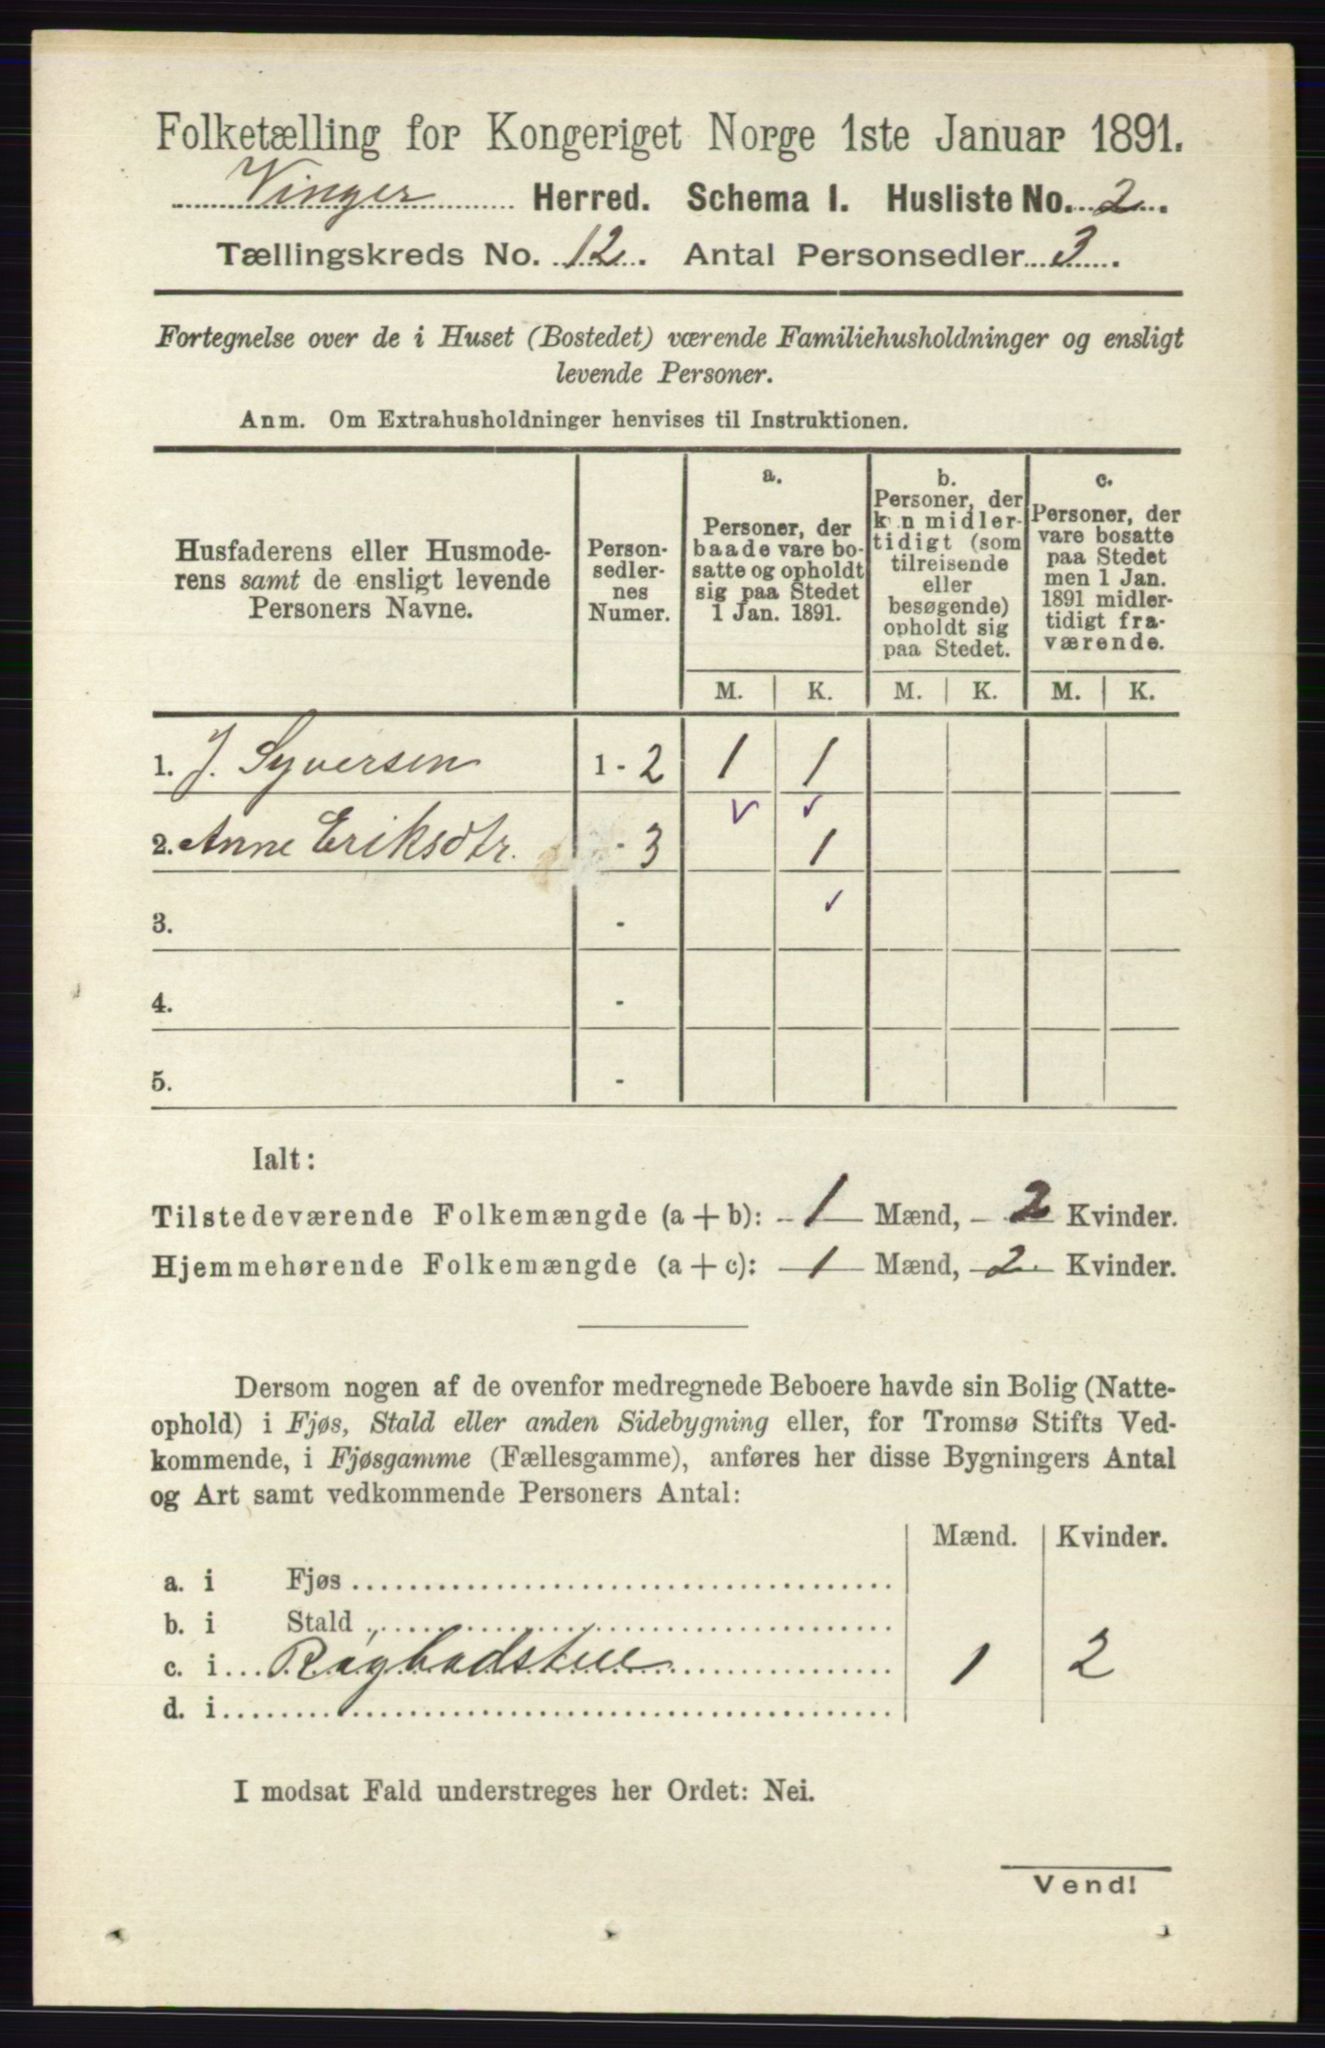 Folketælling for Kongeriget Norge 1ste Januar 1891.
Vinger Herred. Schema I. Husliste No. 2.
Tællingskreds No. 12. Antal Personsedler 3.
Fortegnelse over de i Huset (Bostedet) værende Familiehusholdninger og ensligt
levende Personer.
Anm. Om Extrahusholdninger henvises til Instruktionen.
Husfaderens eller Husmode-
rens samt de ensligt levende
Personers Navne.
Person-
sedler-
nes
Numer.
a.
Personer, der
baade vare bo-
satte og opholdt
sig paa Stedet
1 Jan. 1891.
b.
Personer, der
kun midler-
tidigt (som
tilreisende
eller
besøgende)
opholdt sig
paa Stedet.
c.
Personer, der
vare bosatte
paa Stedet
men 1 Jan.
1891 midler-
tidigt fra-
værende.
M. K. M. K. M. K.
1. J. Syversen 1 - 2 1 1
2. Anne Eriksdtr. - 3 1
3. -
4. -
5. -
Ialt:
Tilstedeværende Folkemængde (a + b): 1 Mænd, 2 Kvinder.
Hjemmehørende Folkemængde (a + c): 1 Mænd, 2 Kvinder.
Dersom nogen af de ovenfor medregnede Beboere havde sin Bolig (Natte-
ophold) i Fjøs, Stald eller anden Sidebygning eller, for Tromsø Stifts Ved-
kommende, i Fjøsgamme (Fællesgamme), anføres her disse Bygningers Antal
og Art samt vedkommende Personers Antal:
Mænd. Kvinder.
a. i Fjøs
b. i Stald
c. i Røgbadstue 1 2
d. i
I modsat Fald understreges her Ordet: Nei.
Vend!